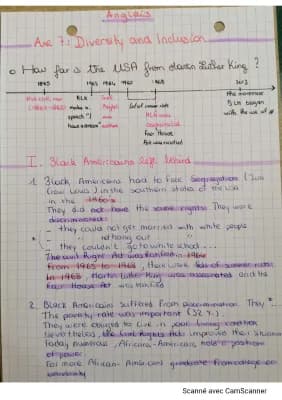 Anglais
Axe 7: Diversity and Inclusion
o How far is the USA from Martin Luther King ?
1865 1963 1964 1965 1968 2013
MLK
make a
speech "I
have a dream"
Civil
Rights
List of
MLK was
assassinated
Fair House
Act was enacted
the movement
BLM began
with the use of #
I. Black Americans left behind
1. Black Americans had to face segregation (Jim
Crow Laws) in the southern states of the USA
in the 1960's
They did not have the same rights. They were
discriminated:
- they could not get married with white people
- hang out
- they couldn't go to white school...
The Civil Right Act was enacted in 1964
From 1965 to 1968, there were lots of
In 1968, Martin Luther King was assassinated and the
Fair House Act was enacted
2. Black Americans suffered from discrimination. They
The poverty rate was important (32 %).
They were obliged to live in poor living condition
Nevertheless, the Civil Rights Act improved their
Today numerous African-Americans hold a positions
of power
For more African-Americans graduate from college or
university
Scanné avec CamScanner